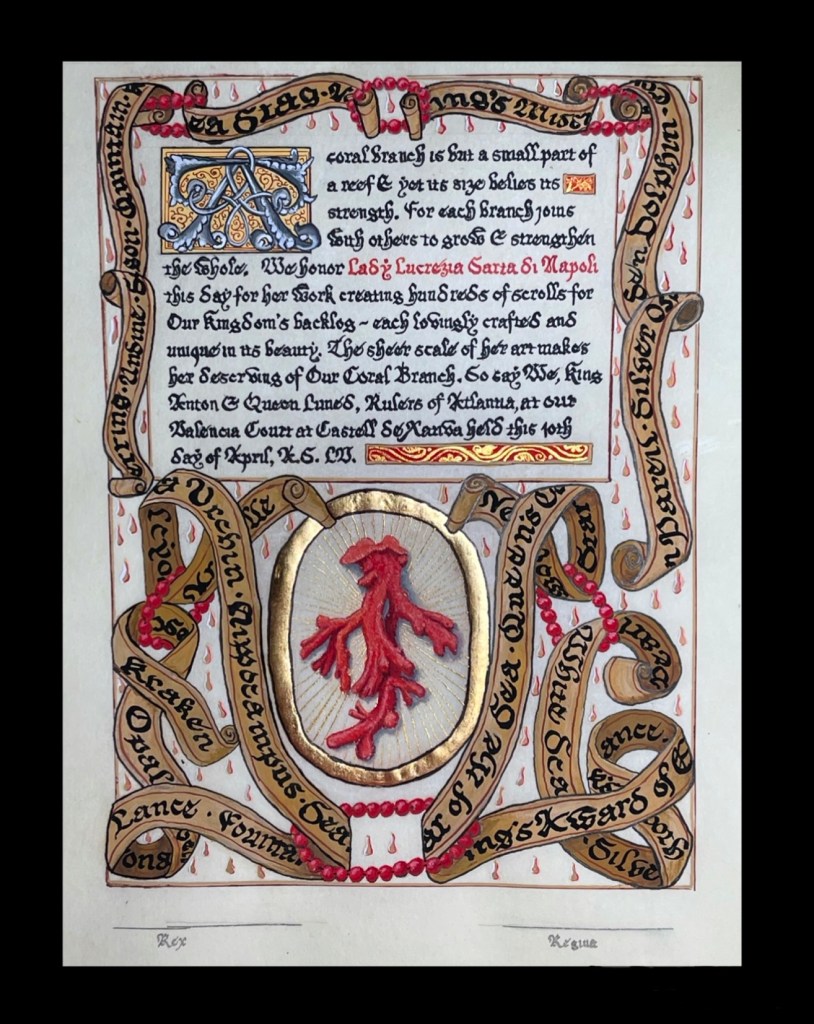 A coral branch is but a small part of
a reef & yet its size belies its
strength. For each branch joins
with others to grow & strengthen
the whole. We honor Lady Lucrezia Saria di Napoli
this day for her work creating hundreds of scrolls for
Our Kingdom's backlog ~ each lovingly crafted and
unique in its beauty. The sheer scale of her art makes
her deserving of Our Coral Branch. So say We, King
Anton & Queen Luned, Rulers of Atlantia, at our
Valencia Court at Castell de Xativa held this 10th
day of April, A.S. LVI.
ea Stag
ing's
Sen Dolphin
Silver
Undine
& Urchin · Hippocampus · Sea
ar of the Sea · Queen's
Kraken
Opal
Pearl
White Sea
Lance ·
ing's Award of E
Silve
Rex
Regina